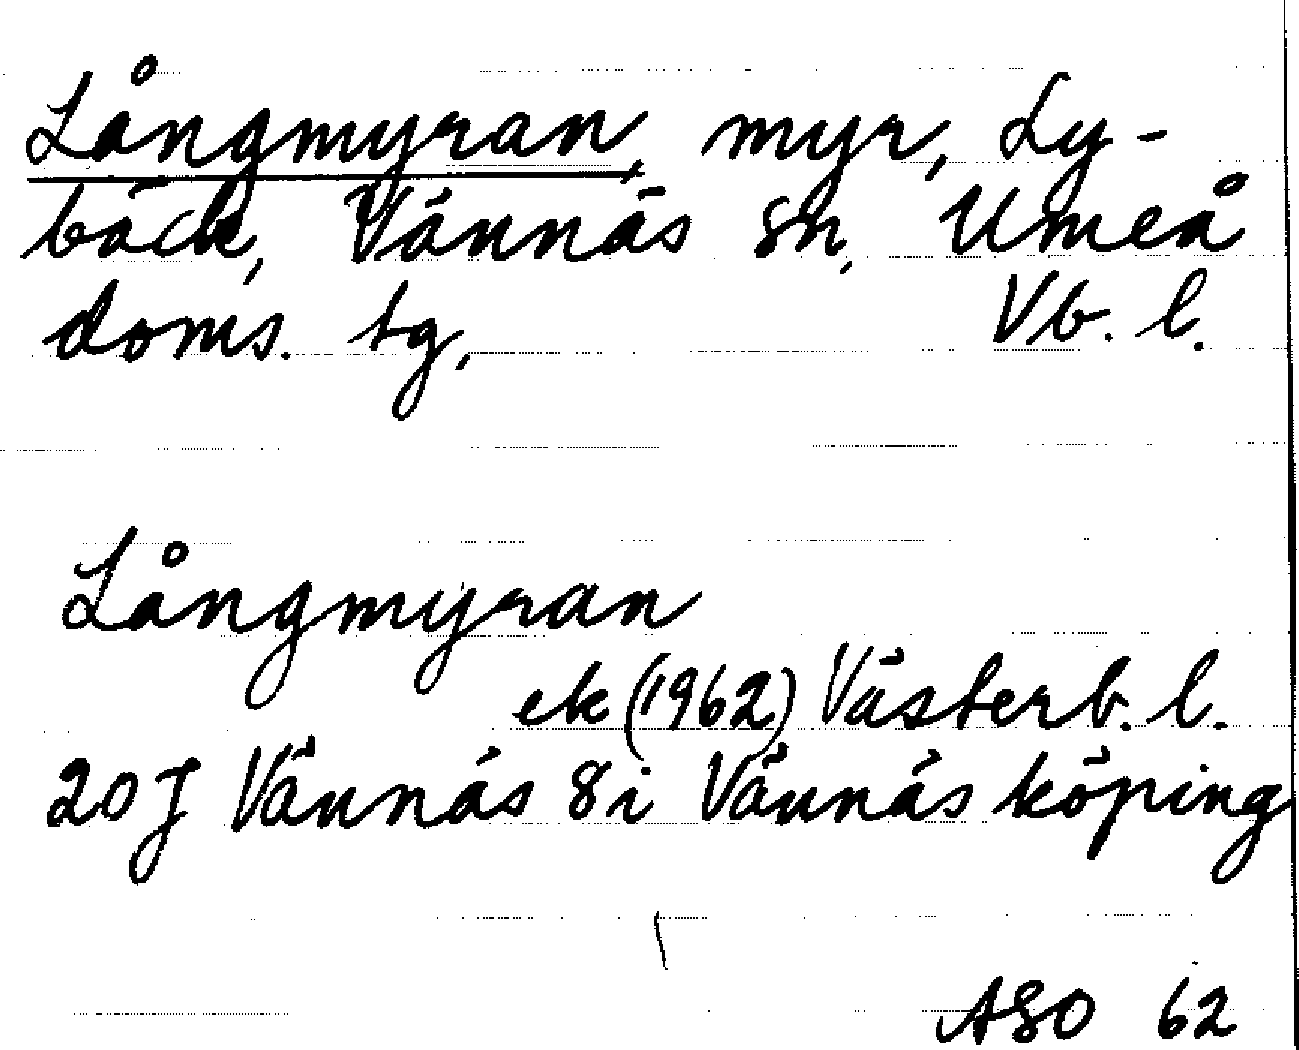 Långmyran, myr, Ly-
bäck, Vännäs sn, Umeå
doms. tg, Vb. l.
Långmyran
ek (1962) Västerb. l.
20J Vännäs 8i Vännäs köping
ASO 62